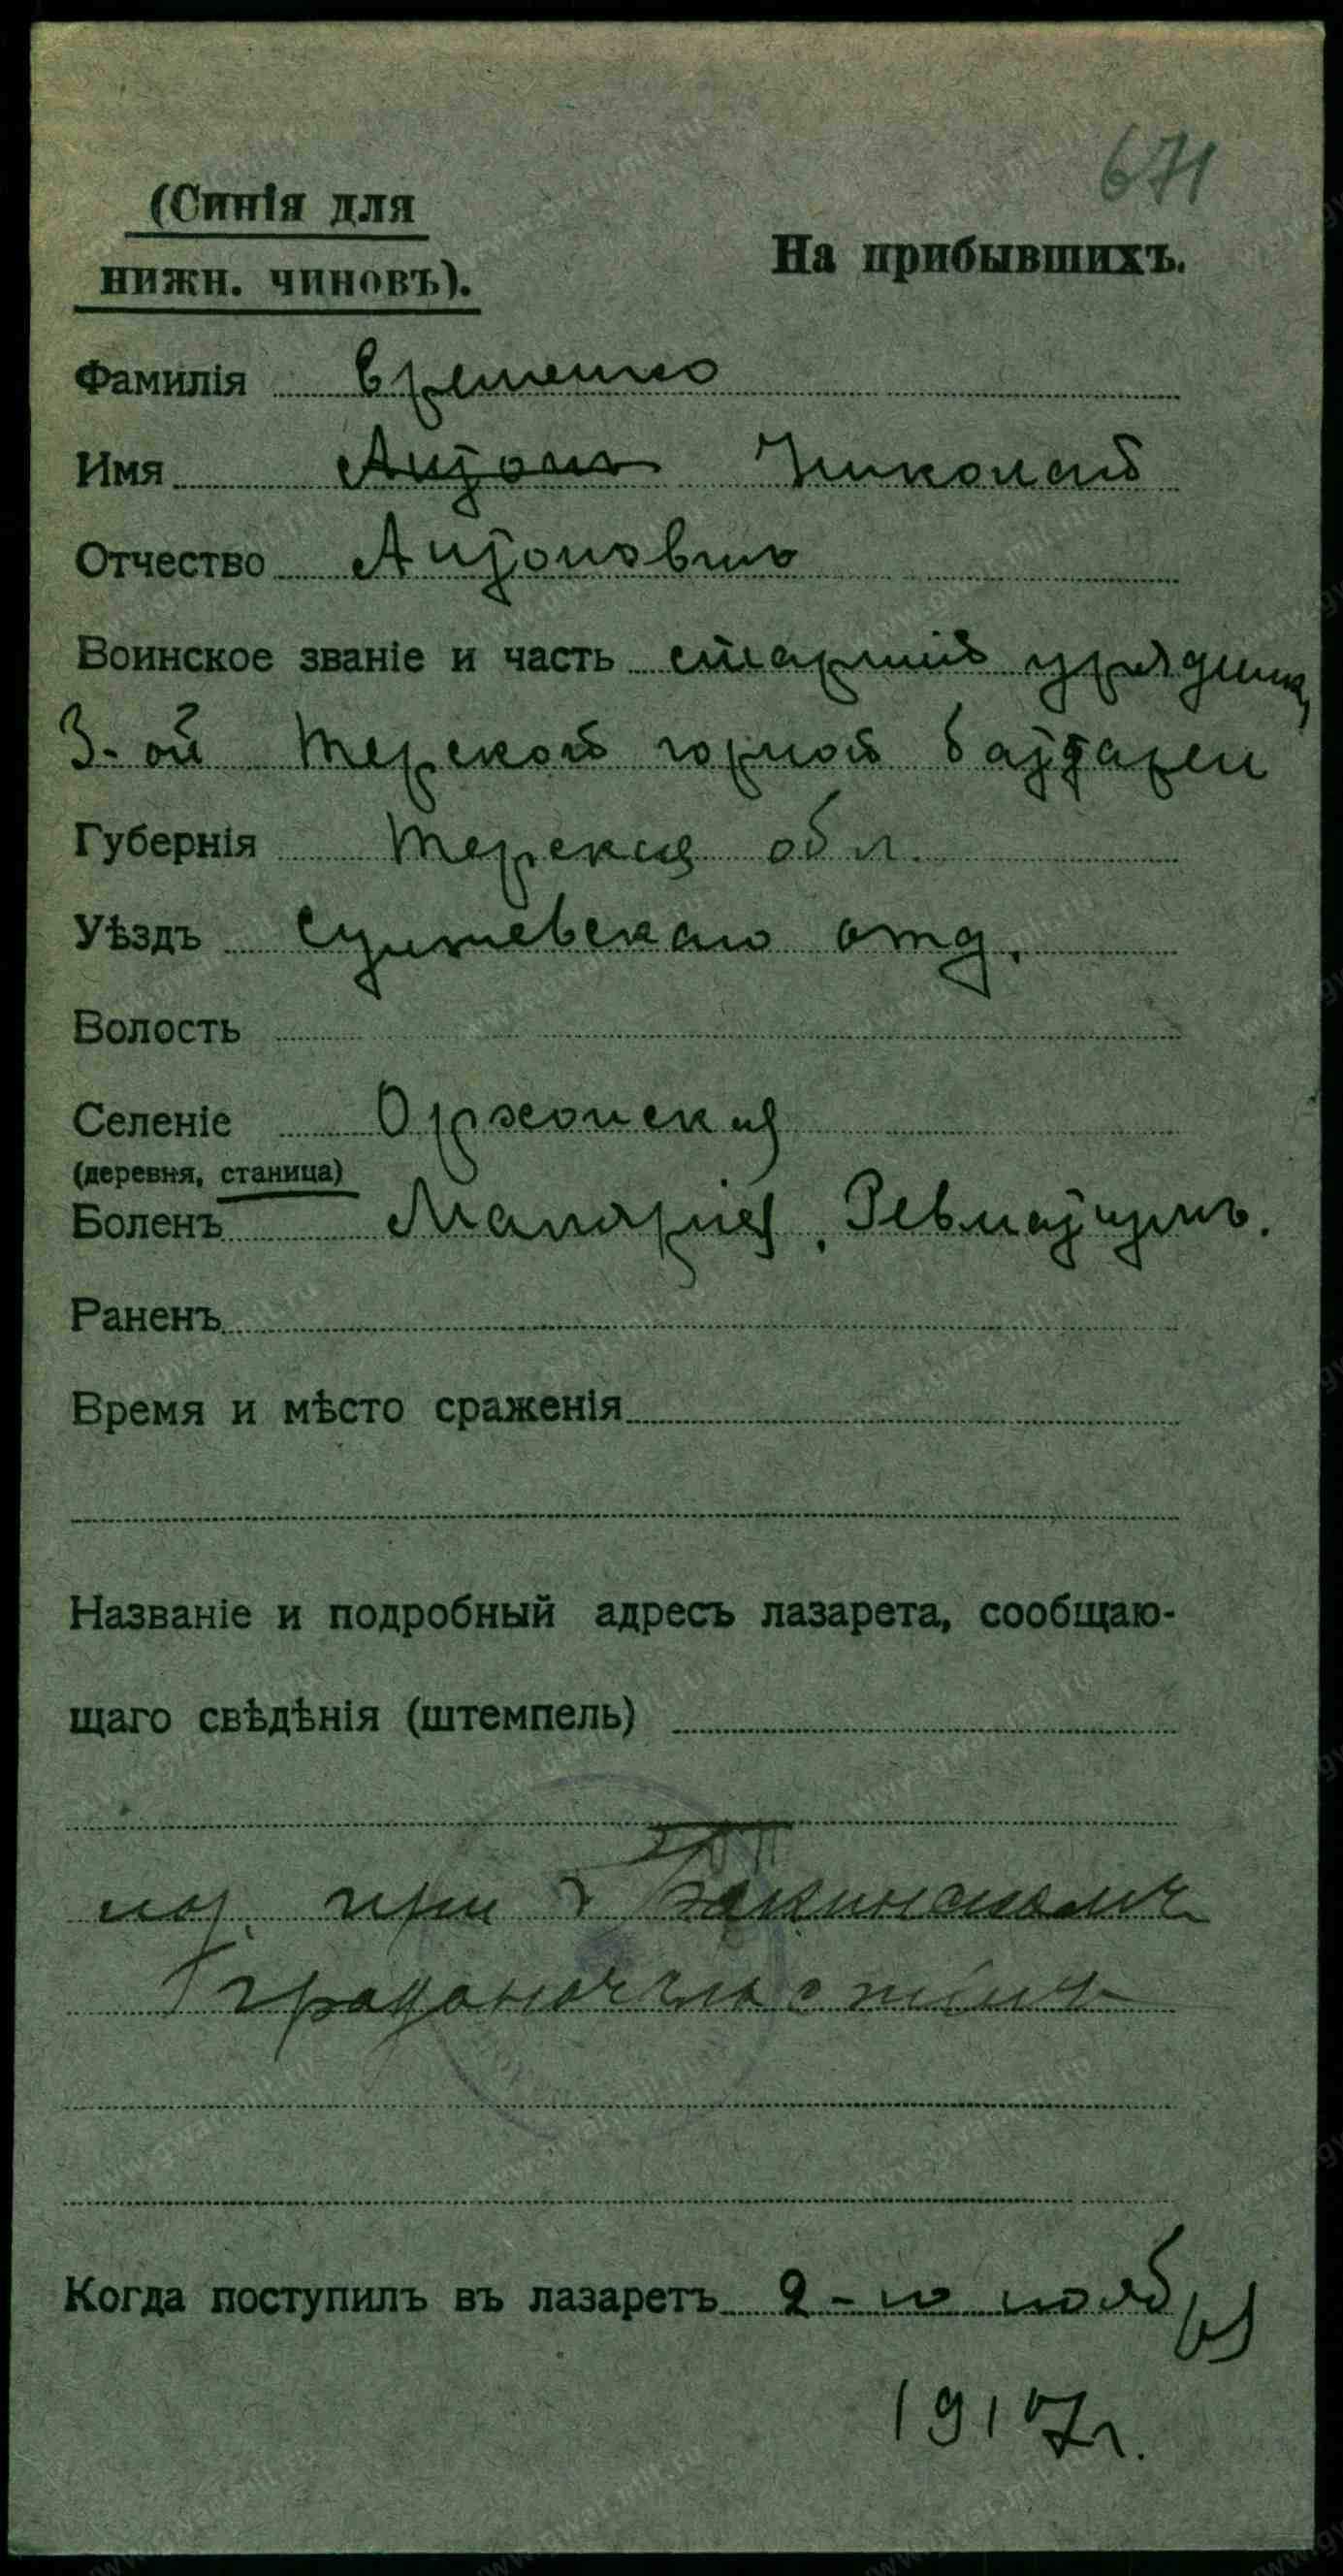 671
(Синія для
нижн. чиновъ).
На прибывшихъ.
Фамилія Еременко
Имя Антонъ Николай
Отчество Антоновичъ
Воинское званіе и часть старшій урядникъ
3-ой Терской горной батареи
Губернія Терская обл.
Уѣздъ Сунженскаго отд.
Волость
Селеніе Орхонская
(деревня, станица)
Боленъ Малярія, Ревматизмъ.
Раненъ
Время и мѣсто сраженія
Названіе и подробный адресъ лазарета, сообщаю-
щаго свѣдѣнія (штемпель)
при Бакинскомъ
Градоначальствѣ
Когда поступилъ въ лазаретъ 2-го ноября
1917 г.